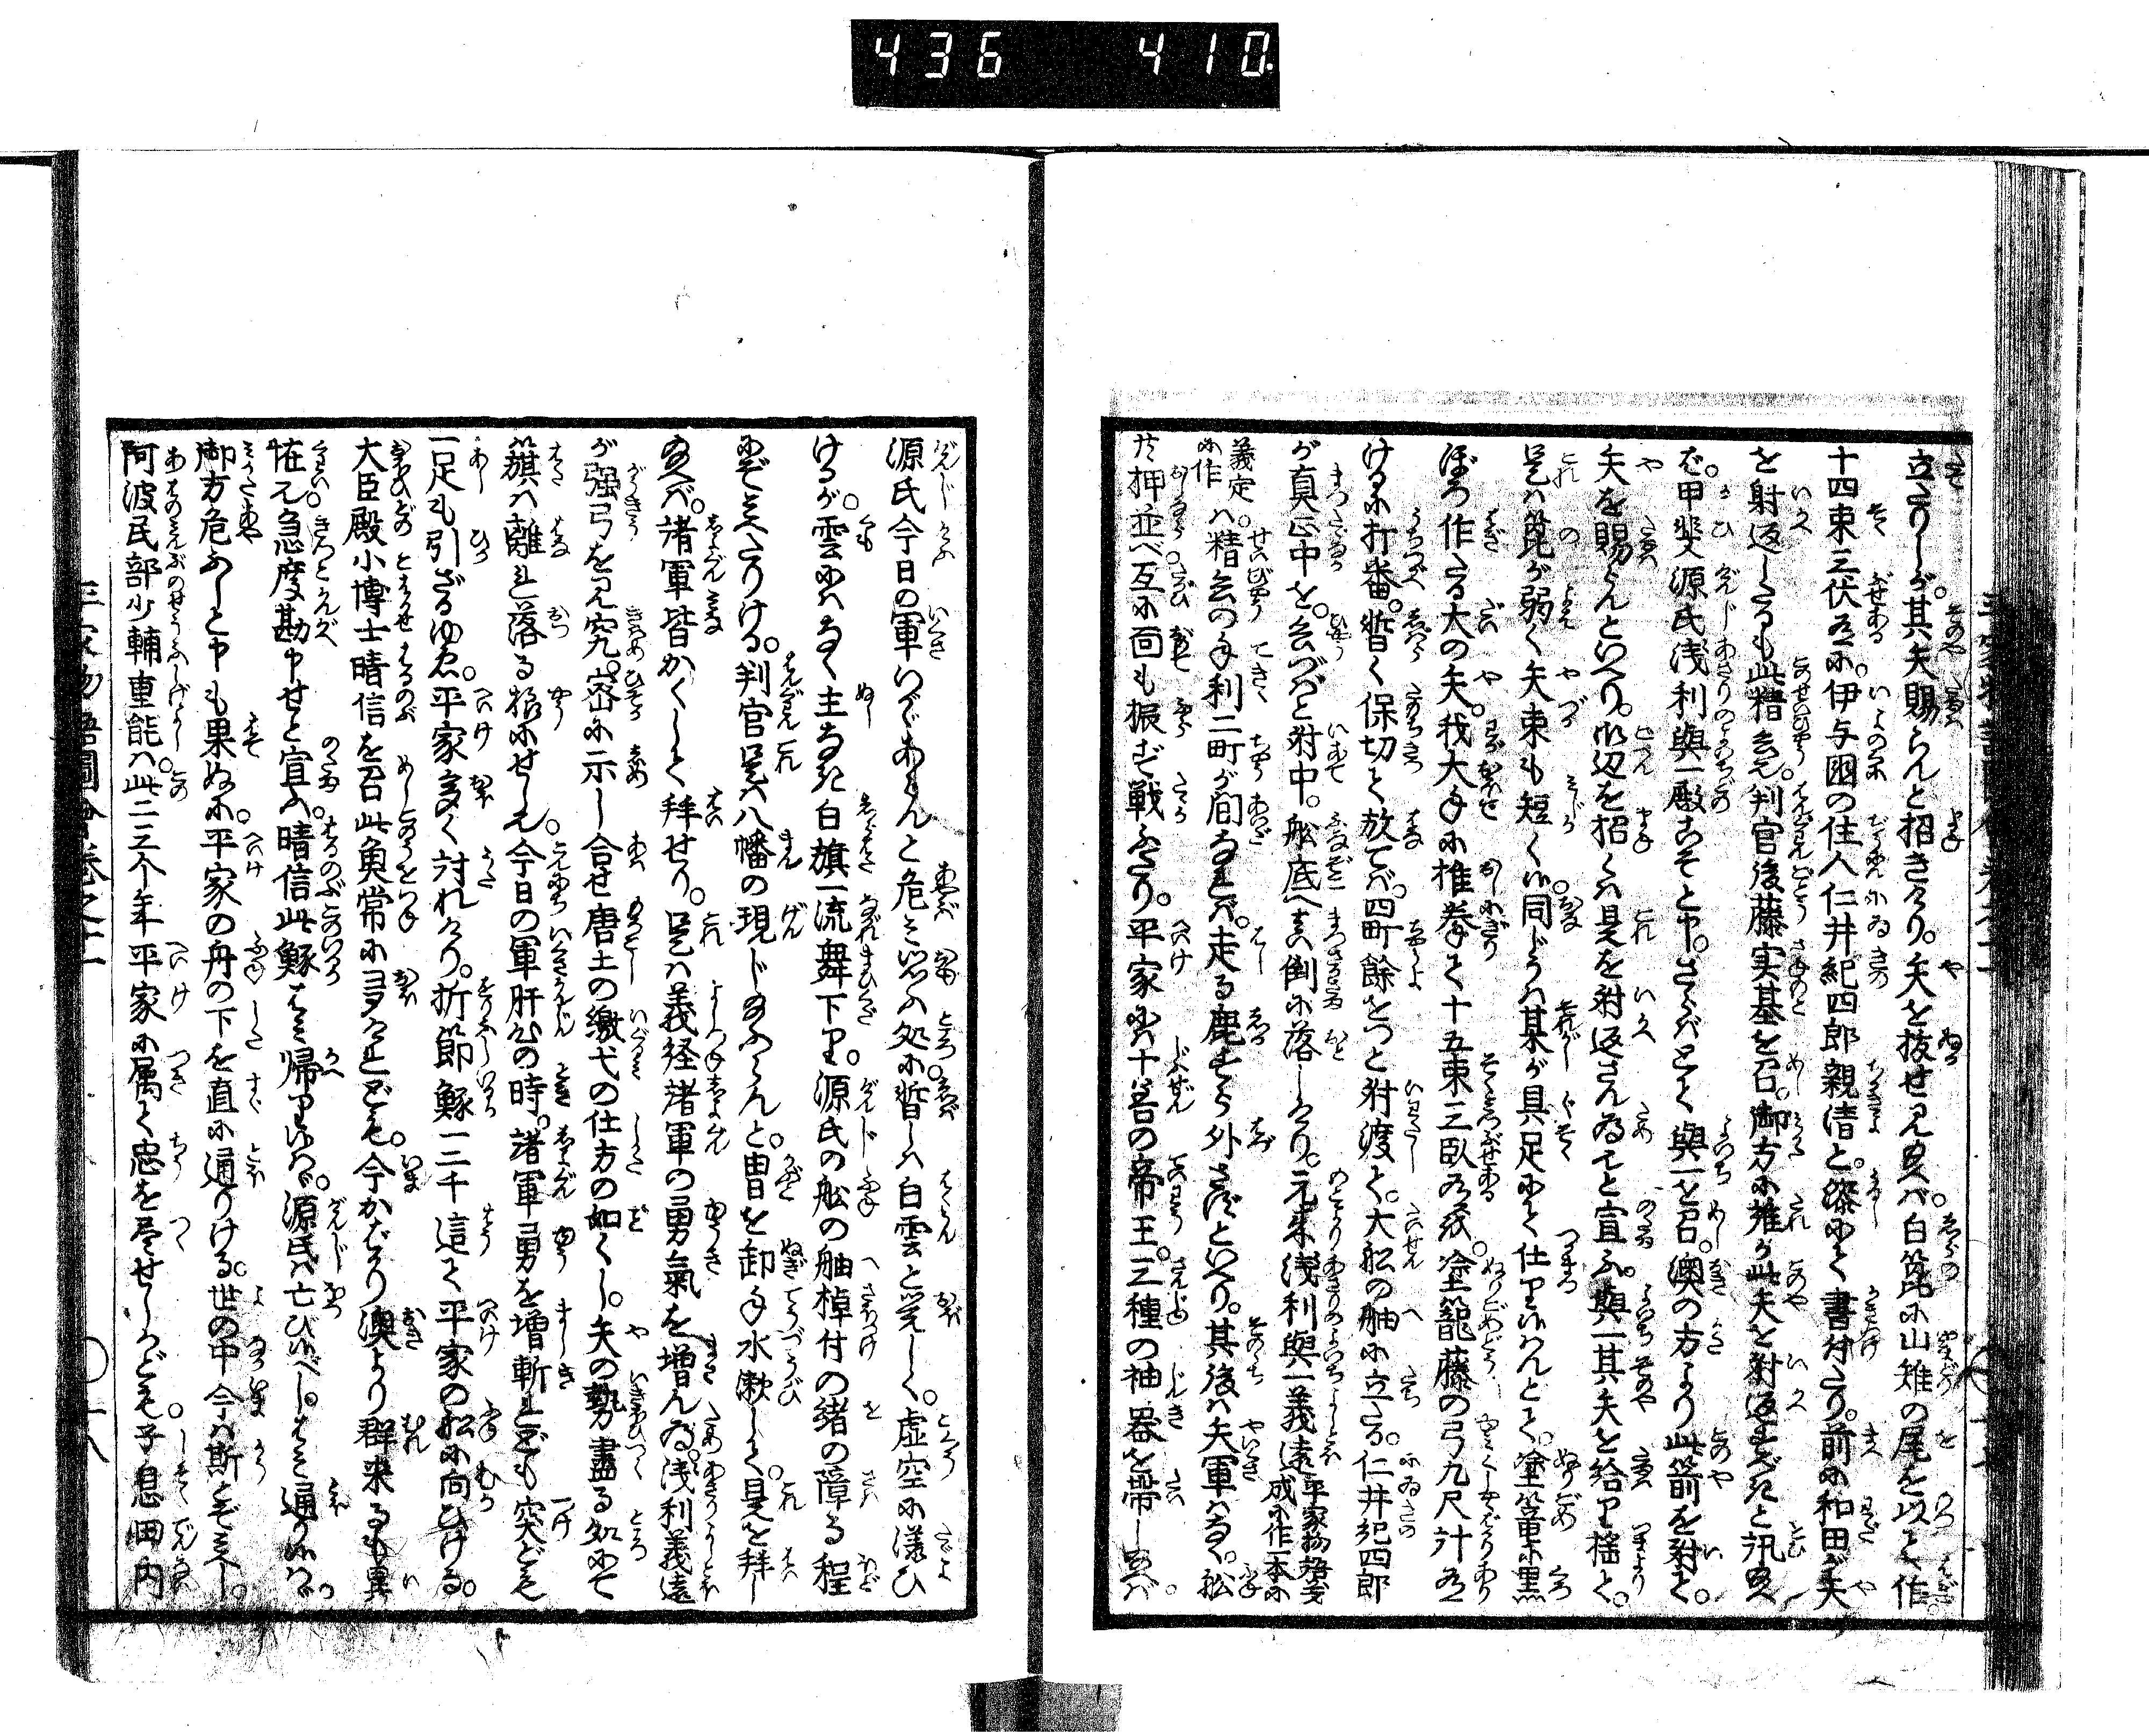 436 410
立たりしが。其矢賜らんと招きけり。矢を抜せ見給へバ白箆に山雉の尾を以て作
十四束三伏有に。伊与國の住人仁井紀四郎親清と。漆にて書付たり。前に和田が矢
を射返したるも此精兵。判官後藤実基を召。御方に誰か此矢を射返すべきと汛給へ
ば。甲斐源氏浅利與一殿こそと申。さらバとて與一を召。澳の方より此箭を射て。
矢を賜らんといへり。御辺を招くハ是を射返さん為也と宣ふ。與一其矢を給り揺て。
是ハ箆が弱く矢束も短く候。同じうハ某が具足にて仕り候ハんとて。塗箆に黒
ぼろ作たる大の矢。我大手に推拳て十五束三臥有を。塗籠藤の弓九尺計有
けるに打番。暫く保切て放てバ。四町餘をつと射渡て。大舩の舳に立たる。仁井紀四郎
が真正中を。兵づばと射中。舩底へ真倒に落しけり。元来浅利與一義遠平家物語義成に作一本に
義定に作ハ精兵の手利二町が間なれバ。走る鹿すら外さずといへり。其後ハ矢軍ハなく。舩
共押並べ互に面も振ず戦ふたり。平家にハ十善の帝王。三種の神器を帯し給へバ。
源氏今日の軍いかゞあらんと危く思ふ処に。暫しハ白雲と覚しく。虚空に漾ひ
けるが。雲にハなく主なき白旗一流舞下り。源氏の舩の舳棹付の緒の障る程
にぞ見へたりける。判官是ハ八幡の現じ給ふらんと。冑を卸手水漱して。是を拝し
給へバ。諸軍皆かくして拝せり。是ハ義経諸軍の勇氣を増ん為。浅利義遠
が强弓を見究。密に示し合せ唐土の繳弋の仕方の如くし。矢の勢盡る処にて
籏ハ離れ落る様にせし也。今日の軍肝心の時。諸軍勇を増斬れども突ども
一足も引ざるゆゑ。平家多く討れけり。折節鯨一二千這て平家の舩に向ひける。
大臣殿小博士晴信を召此魚常に多けれども。今かばかり澳より群来るも異
恠也。急度勘申せと宣へ。晴信此鯨はミ帰り候ハゞ。源氏ハ亡び候べし。はミ通り候ハゞ
御方危ふしと申も果ぬに。平家の舟の下を直に通りける。世の中今ハ斯とぞ見へし。
阿波民部少輔重能ハ。此二三个年平家に属て忠を尽せしかども。子息田内
平家物語圖會巻之十一 〇十八